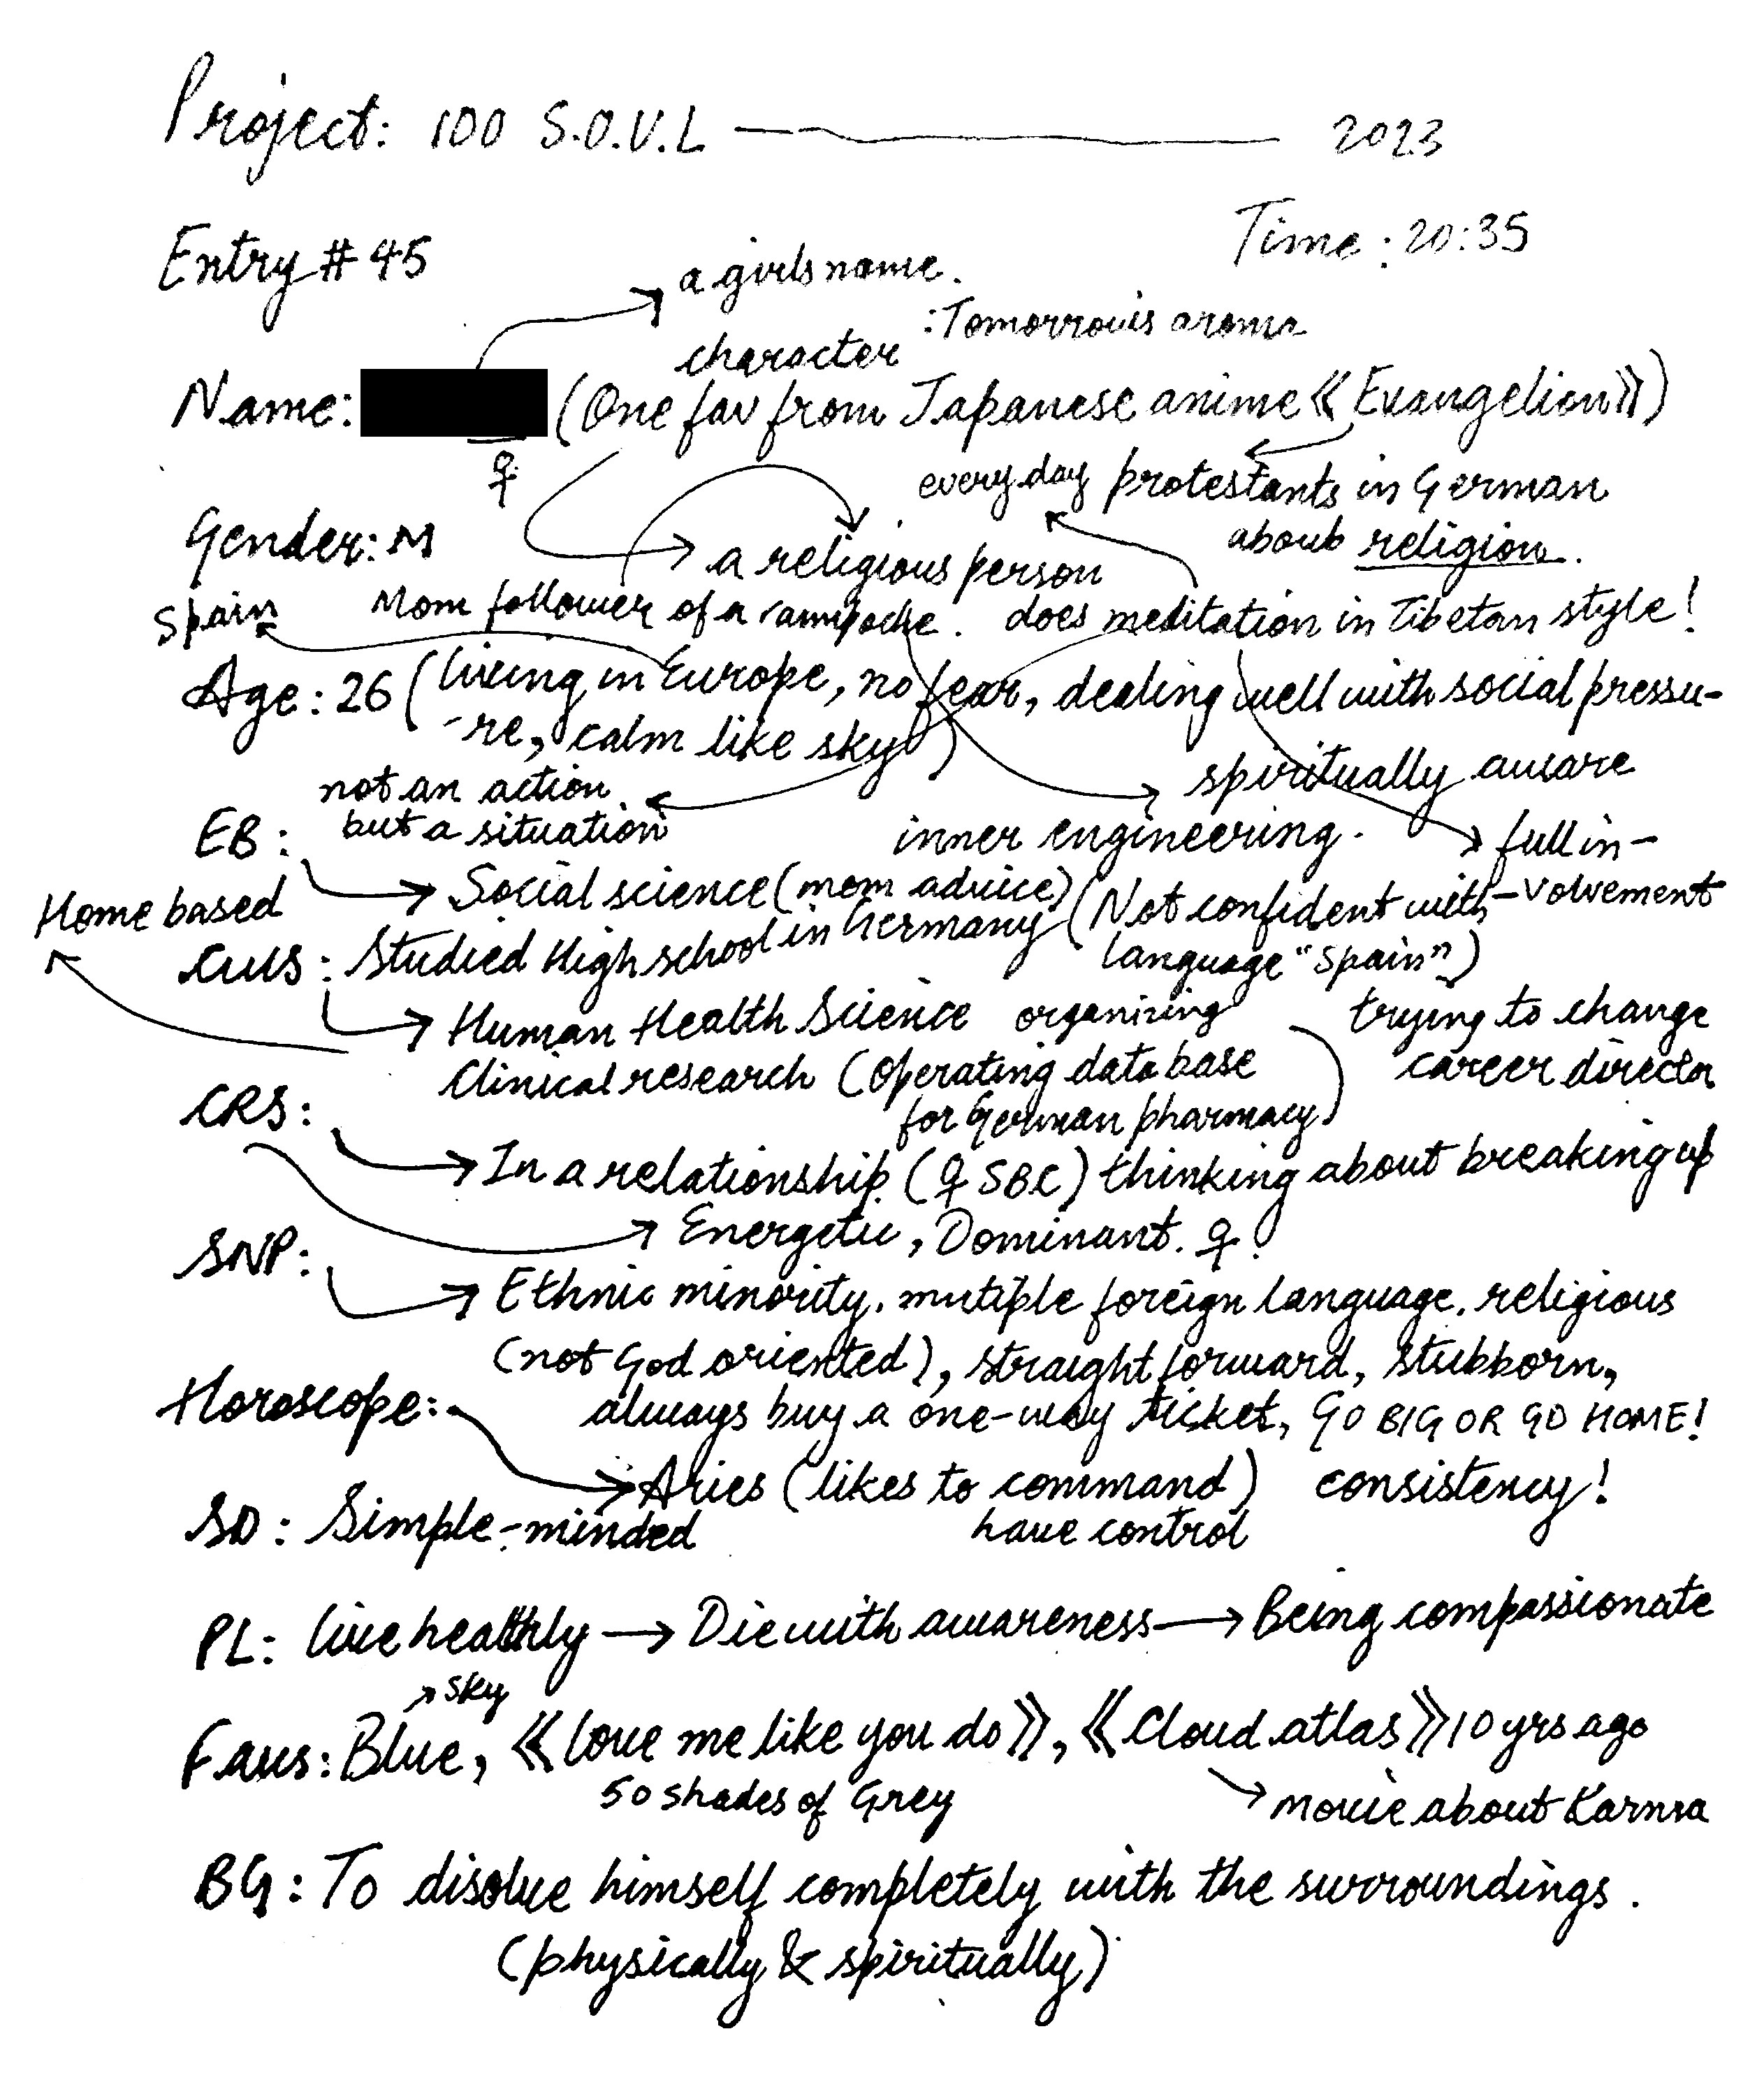 Project: 100 S.O.U.L ——— 2023
Time: 20:35
Entry # 45
a girls name.
: Tomorrow's aroma
character
Name: (One fav from Japanese anime 《Evangelion》)
♀
every day protestants in German
about religion.
Gender: M
a religious person
Spain
Mom follower of a . does meditation in Tibetan style!
Age: 26 (living in Europe, no fear, dealing well with social pressu-
-re, calm like sky)
spiritually aware
not an action
but a situation
EB:
inner engineering.
full in-
-volvement
Social science (mom advice)
Home based
CWS: Studied High school in Germany (Not confident with
language "Spain")
Human Health Science organizing
trying to change
career director
Clinical research (Operating data base
for German pharmacy)
CRS:
In a relationship (♀ SBC) thinking about breaking up
Energetic, Dominant. ♀
SNP:
Ethnic minority. mutiple foreign language. religious
(not God oriented), straight forward, stubborn,
always buy a one-way ticket, GO BIG OR GO HOME!
Horoscope:
Aries (likes to command) consistency!
have control
SD: Simple-minded
PL: live healthly → Die with awareness → Being compassionate
sky
Favs: Blue, 《love me like you do》, 《Cloud atlas》 10 yrs ago
50 shades of Grey
movie about Karma
BG: To disolve himself completely with the surroundings.
(physically & spiritually)